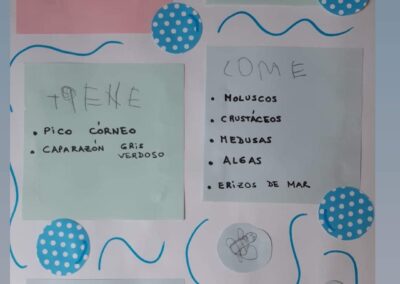 TIENE
• PICO CÓRNEO
• CAPARAZÓN GRIS
VERDOSO
COME
• MOLUSCOS
• CRUSTÁCEOS
• MEDUSAS
• ALGAS
• ERIZOS DE MAR